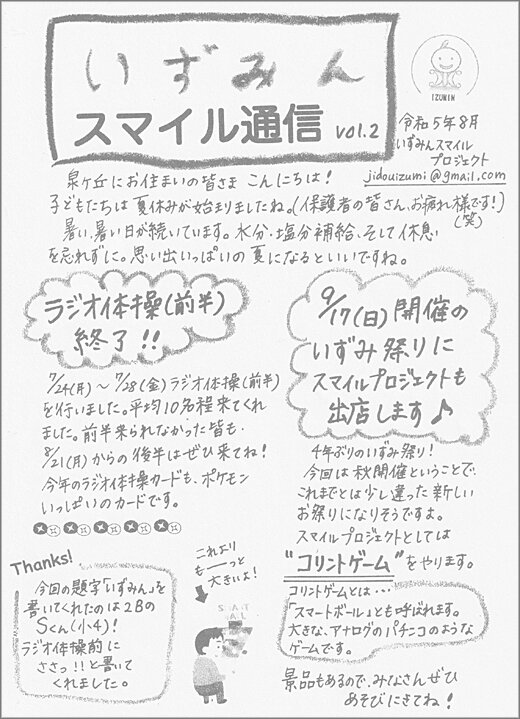 いずみん
スマイル通信 vol.2
IZUMIN
令和5年8月
いずみんスマイル
プロジェクト
jidouizumi@gmail.com
泉ヶ丘にお住まいの皆さま こんにちは!
子どもたちは夏休みが始まりましたね。(保護者の皆さん、お疲れ様です!)
(笑)
暑い、暑い日が続いています。水分・塩分補給、そして休息
を忘れずに。思い出いっぱいの夏になるといいですね。
ラジオ体操(前半)
終了!!
7/24(月)〜7/28(金)ラジオ体操(前半)
を行いました。平均10名程来てくれ
ました。前半来られなかった皆も、
8/21(月)からの後半はぜひ来てね!
今年のラジオ体操カードも、ポケモン
いっぱいのカードです。
Thanks!
今回の題字「いずみん」を
書いてくれたのは2Bの
Sくん(小4)!
ラジオ体操前に
ささっ!!と書いて
くれました。
これより
もーーっと
大きいよ!
START
9/17(日)開催の
いずみ祭りに
スマイルプロジェクトも
出店します♪
4年ぶりのいずみ祭り!
今回は秋開催ということで、
これまでとは少し違った新しい
お祭りになりそうですよ。
スマイルプロジェクトとしては
"コリントゲーム"をやります。
コリントゲームとは…
「スマートボール」とも呼ばれます。
大きな、アナログのパチンコのような
ゲームです。
景品もあるので、みなさんぜひ
あそびにきてね!